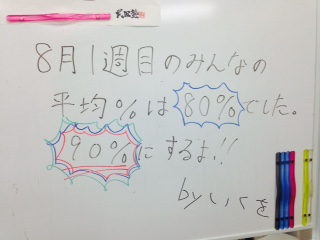 武田塾
8月1週目のみんなの
平均%は80%でした。
90%にするよ!!
byいくを